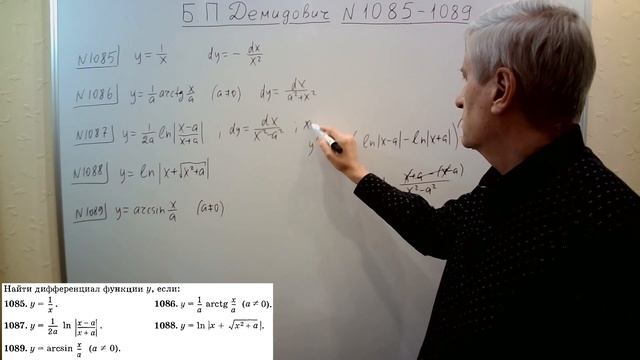 Б П Демидович N 1085-1089
N1085 y = 1/x dy = - dx/x²
N1086 y = 1/a arctg x/a (a≠0) dy = dx/(a²+x²)
N1087 y = 1/2a ln|(x-a)/(x+a)| , dy = dx/(x²-a²) , x
y ln|x-a| - ln|x+a|
x+a - (x-a)
x²-a²
N1088 y = ln|x+√(x²+a)|
N1089 y = arcsin x/a (a≠0)
Найти дифференциал функции y, если:
1085. y = 1/x. 1086. y = 1/a arctg x/a (a ≠ 0).
1087. y = 1/2a ln |(x-a)/(x+a)|. 1088. y = ln |x + √(x²+a)|.
1089. y = arcsin x/a (a ≠ 0).